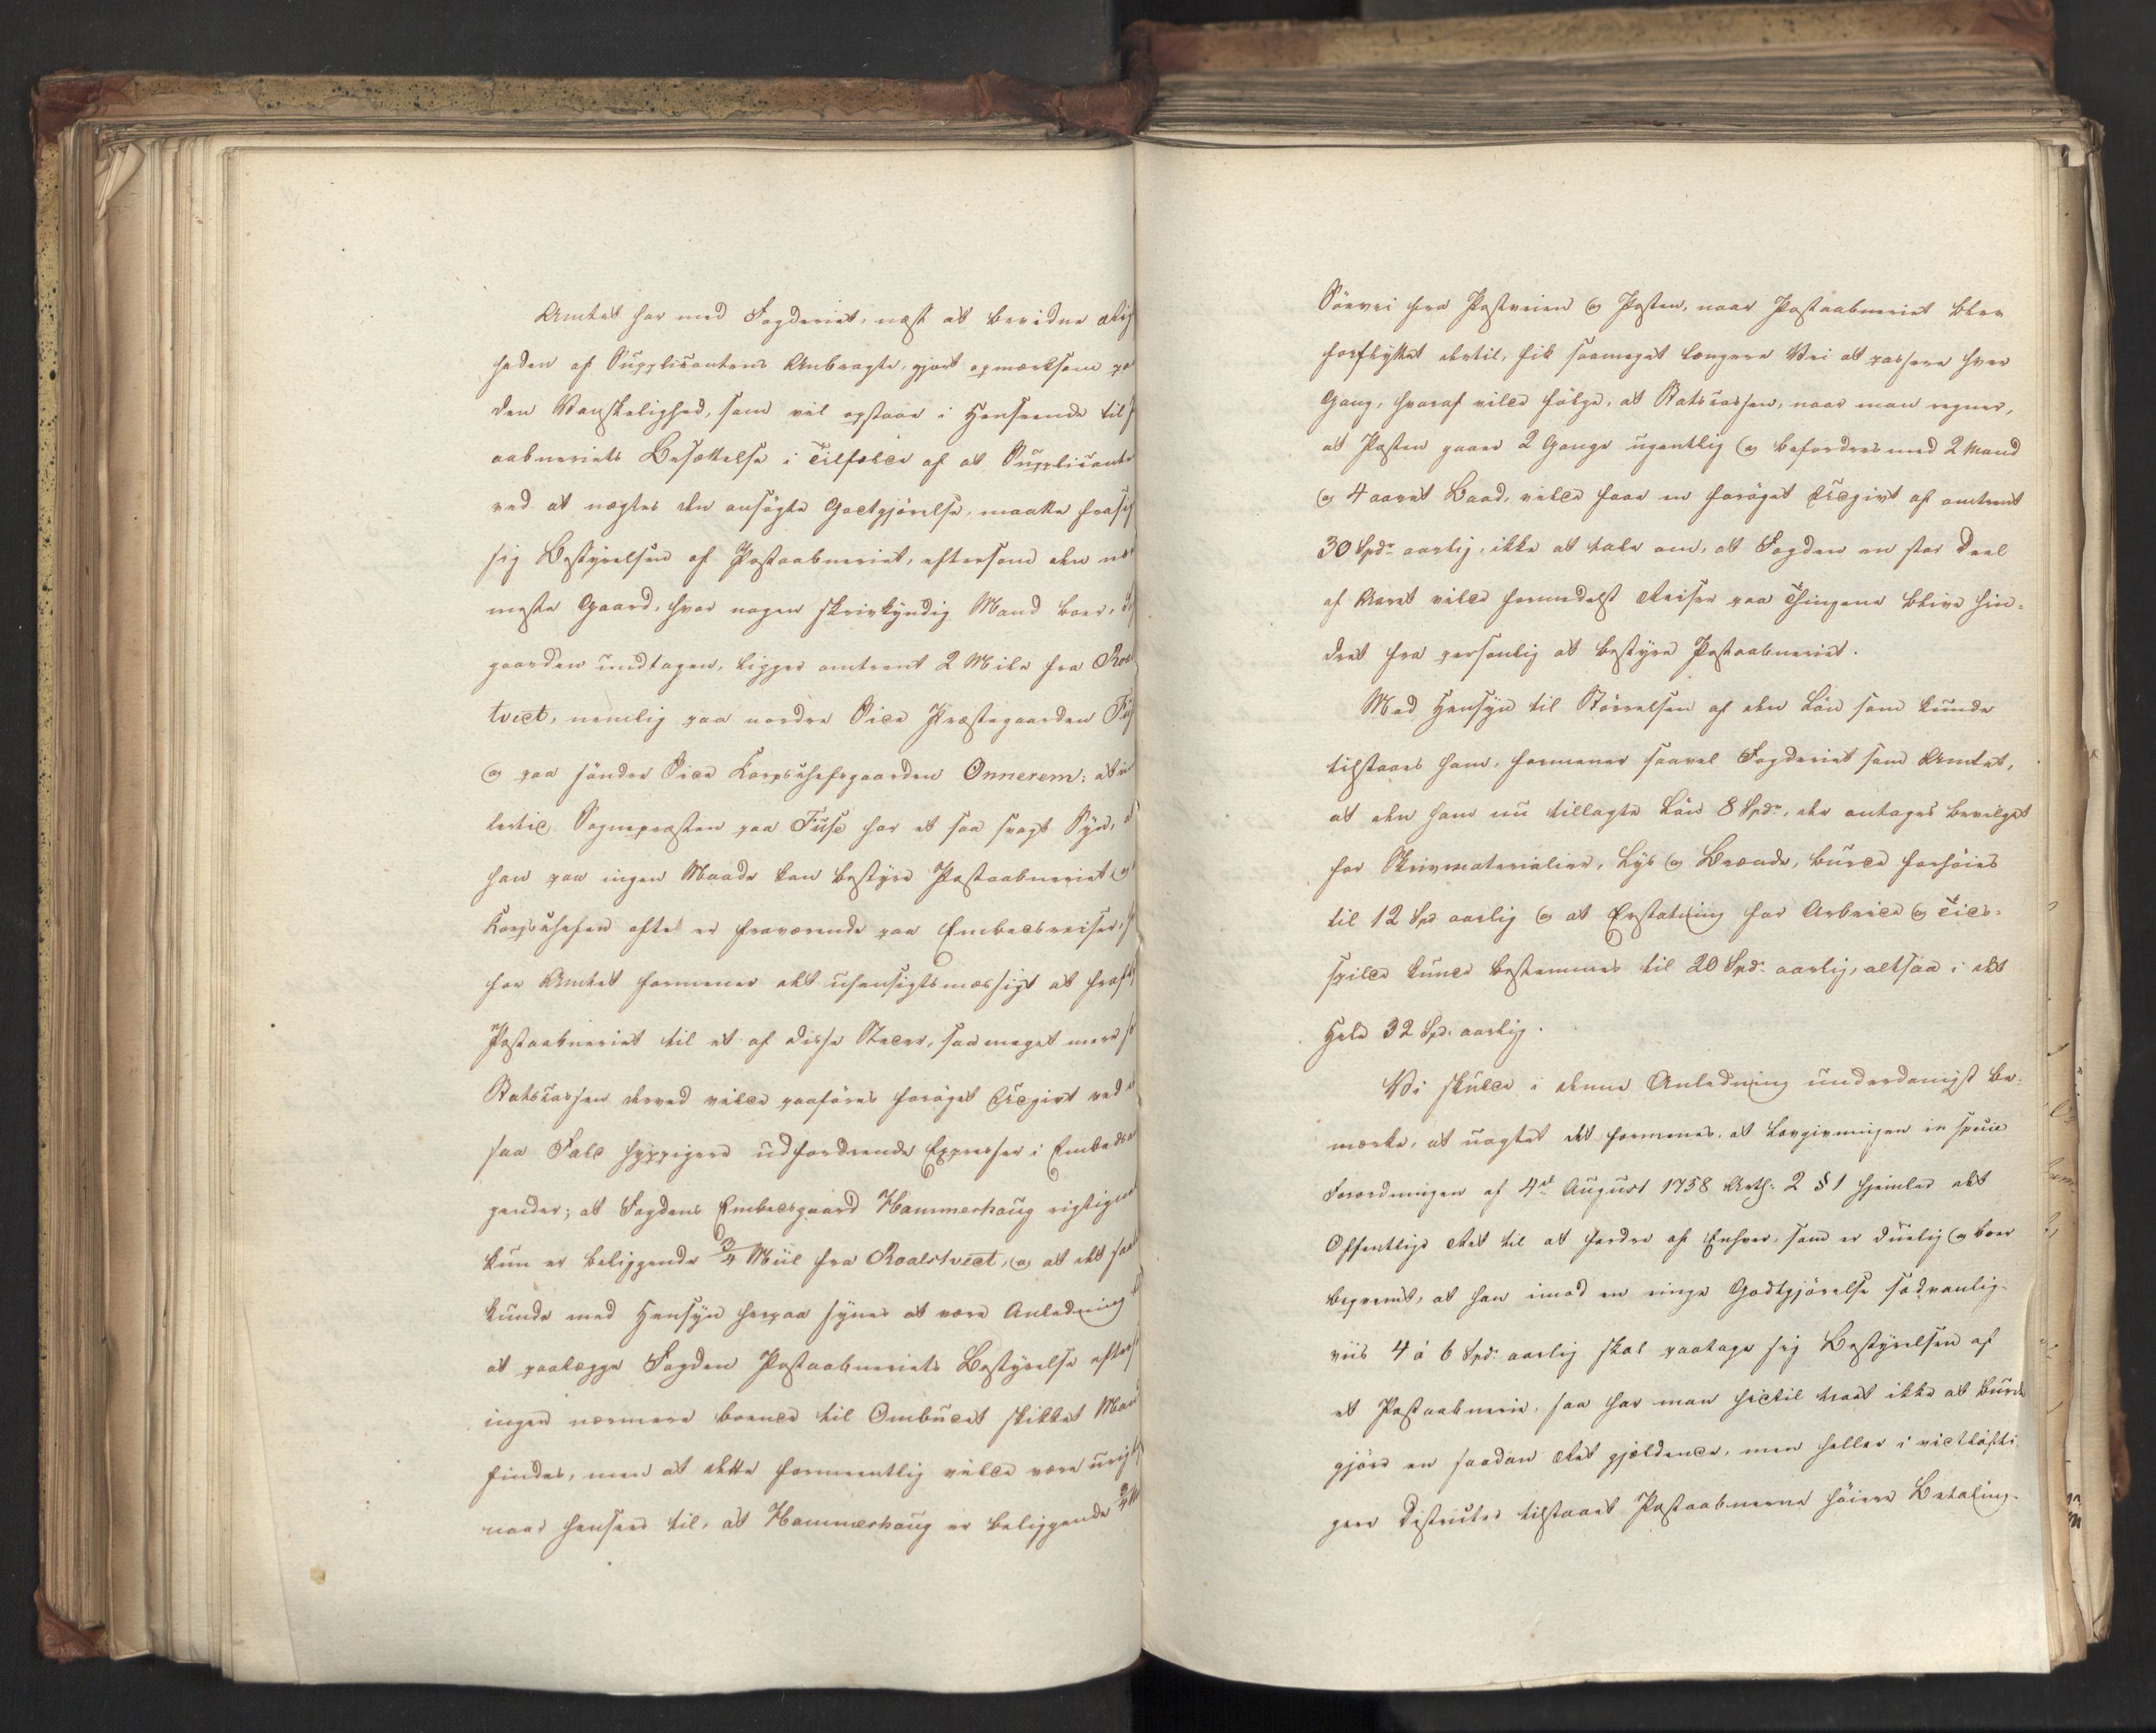 Amtet har med Fogderiet, næst at bevidne Rig
heden af Supplicantens Anbragte, gjort opmærksom pa
den Vanskelighed, som vil opstaae i Henseende til P
aabneriets Besættelse i Tilfælde af at Supplicante
ved at nægtes den ansøgte Godtgjørelse, maatte frasig
sig Bestyrelsen af Postaabneriet, eftersom den næ
meste Gaard, hvor nogen skrivkyndig Mand boer,
gaarden undtagen, ligger omtrent 2 Mile fra Roal
tvedt, nemlig paa nordre Side Præstegaarden Fus
og paa søndre Side Korpschefsgaarden Onnerem; at
Sognepræsten paa Fuse har et saa svagt Syn, a
han paa ingen Maade kan bestyre Postaabneriet og
Korpschefen ofte er fraværende paa Embedsreiser,
for Amtet formener det uhensigtsmæssigt at forfly
Postaabneriet til et af disse Steder, saa meget mere so
Statscassen derved vilde paaføres forøget Udgivt ved
saa Fald hyppigere udfordrende Expresser i Embedsa
gender; at Fogdens Embedsgaard Hammerhaug rigtigno
kun er beliggende 3/4 Miil fra Roalstvedt, og at det saal
kunde med Hensyn herpaa synes at være Anledning
at paalægge Fogden Postaabneriets Bestyrelse efters
ingen nærmere boende til Ombudet skikket Mand
findes, men at dette formeentlig vilde være urig
naar hensees til, at Hammerhaug er beliggende 3/4 M
Søevei fra Postveien og Posten, naar Postaabneriet blev
forflyttet dertil, fik saameget længere Vei at passere hver
Gang, hvoraf vilde følge, at Statscassen, naar man regner,
at Posten gaaer 2 Gange ugentlig og befordres med 2 Mand
og 4 aaret Baad, vilde faae en forøget Udgivt af omtrent
30 Spdr aarlig, ikke at tale om, at Fogden en stor Deel
af Aaret vilde formedelst Reiser paa Thingene blive hin-
dret fra personlig at bestyre Postaabneriet.
Med Hensyn til Størrelsen af den Løn som kunde
tilstaaes ham, formener saavel Fogderiet som Amtet,
at den ham nu tillagte Løn 8 Spdr, der antages bevilget
for Skrivmaterialier, Lys og Brænde, burde forhøies
til 12 Spd aarlig og at Erstatning for Arbeide og Tids-
spilde kunde bestemmes til 20 Spdr aarlig, altsaa i det
Hele 32 Spd. aarlig.
Vi skulde i denne Anledning underdanigst be-
mærke, at uagtet det formenes, at Lovgivningen in specie
Forordningen af 4de August 1758 Arth: 2 § 1 hjemler det
Offentlige Ret til at fordre af Enhver, som er duelig og boer
beqvemt, at han imod en ringe Godtgjørelse sædvanlig-
viis 4 à 6 Spdr aarlig skal paatage sig Bestyrelsen af
et Postaabnerie, saa har man hidtil troet ikke at burde
gjøre en saadan Ret gjældende, men heller i vidtløfti
gere Districter tilstaaet Postaabnerne høiere Betaling.